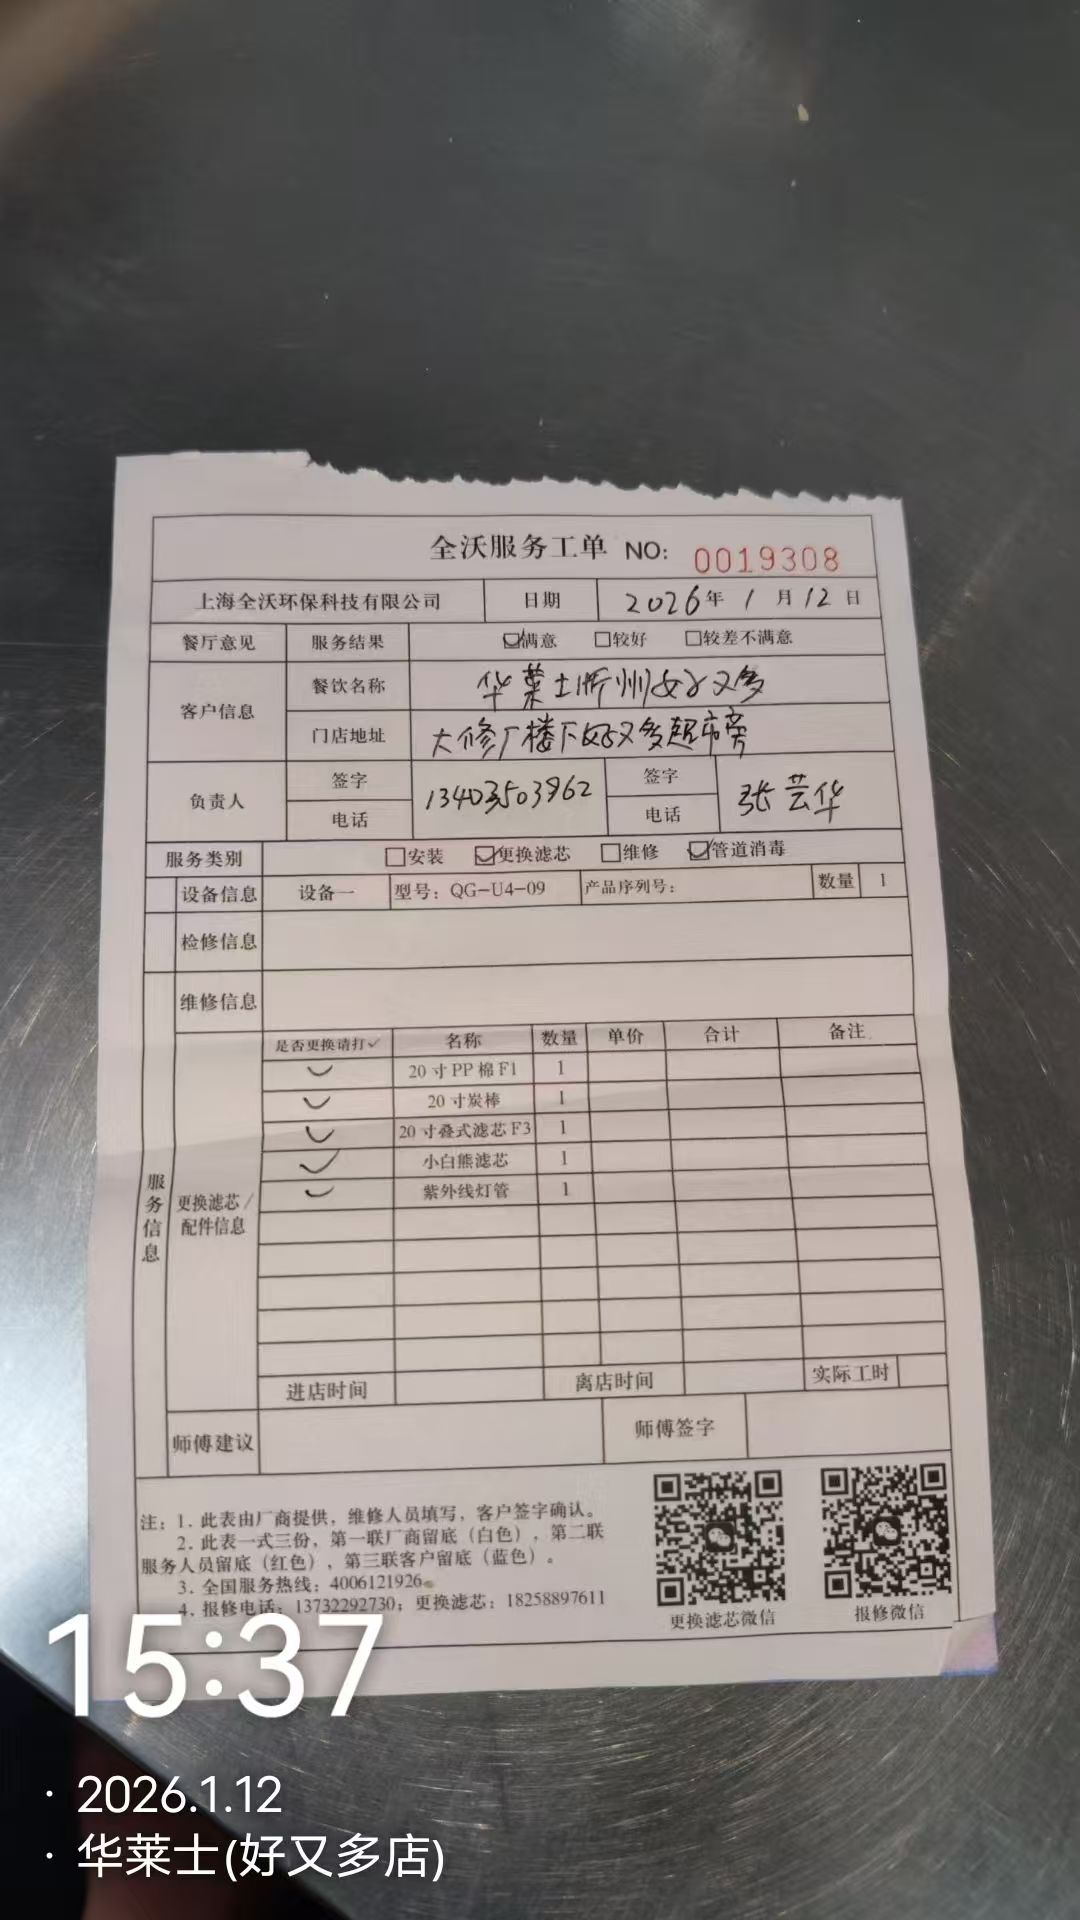 全沃服务工单 NO: 0019308
上海全沃环保科技有限公司 日期 2026年 1 月 12 日
餐厅意见 服务结果 ☑满意 □较好 □较差不满意
客户信息 餐饮名称 华莱士忻州好又多
门店地址 大修厂楼下好又多超市旁
负责人 签字 电话 13403503962 签字 电话 张芸华
服务类别 □安装 ☑更换滤芯 □维修 ☑管道消毒
设备信息 设备一 型号：QG-U4-09 产品序列号： 数量 1
检修信息
维修信息
服务信息
更换滤芯/配件信息
是否更换请打✓ 名称 数量 单价 合计 备注
✓ 20寸PP棉F1 1
✓ 20寸炭棒 1
✓ 20寸叠式滤芯F3 1
✓ 小白熊滤芯 1
✓ 紫外线灯管 1
进店时间 离店时间 实际工时
师傅建议 师傅签字
注：1. 此表由厂商提供，维修人员填写，客户签字确认。
2. 此表一式三份，第一联厂商留底（白色），第二联
服务人员留底（红色），第三联客户留底（蓝色）。
3. 全国服务热线：4006121926
4. 报修电话：13732292730；更换滤芯：18258897611
更换滤芯微信 报修微信
15:37
· 2026.1.12
· 华莱士(好又多店)